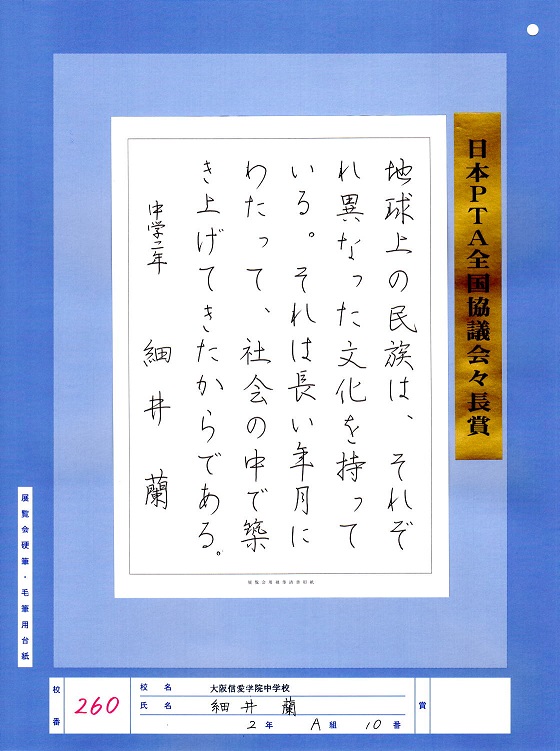 日本PTA全国協議会々長賞
地球上の民族は、それぞ
れ異なった文化を持って
いる。それは長い年月に
わたって、社会の中で築
き上げてきたからである。
中学二年 細井蘭
展覧会用硬筆清書用紙
展覧会硬筆・毛筆用台紙
校番 260
校名 大阪信愛学院中学校
氏名 細井蘭
2年 A組 10番
賞